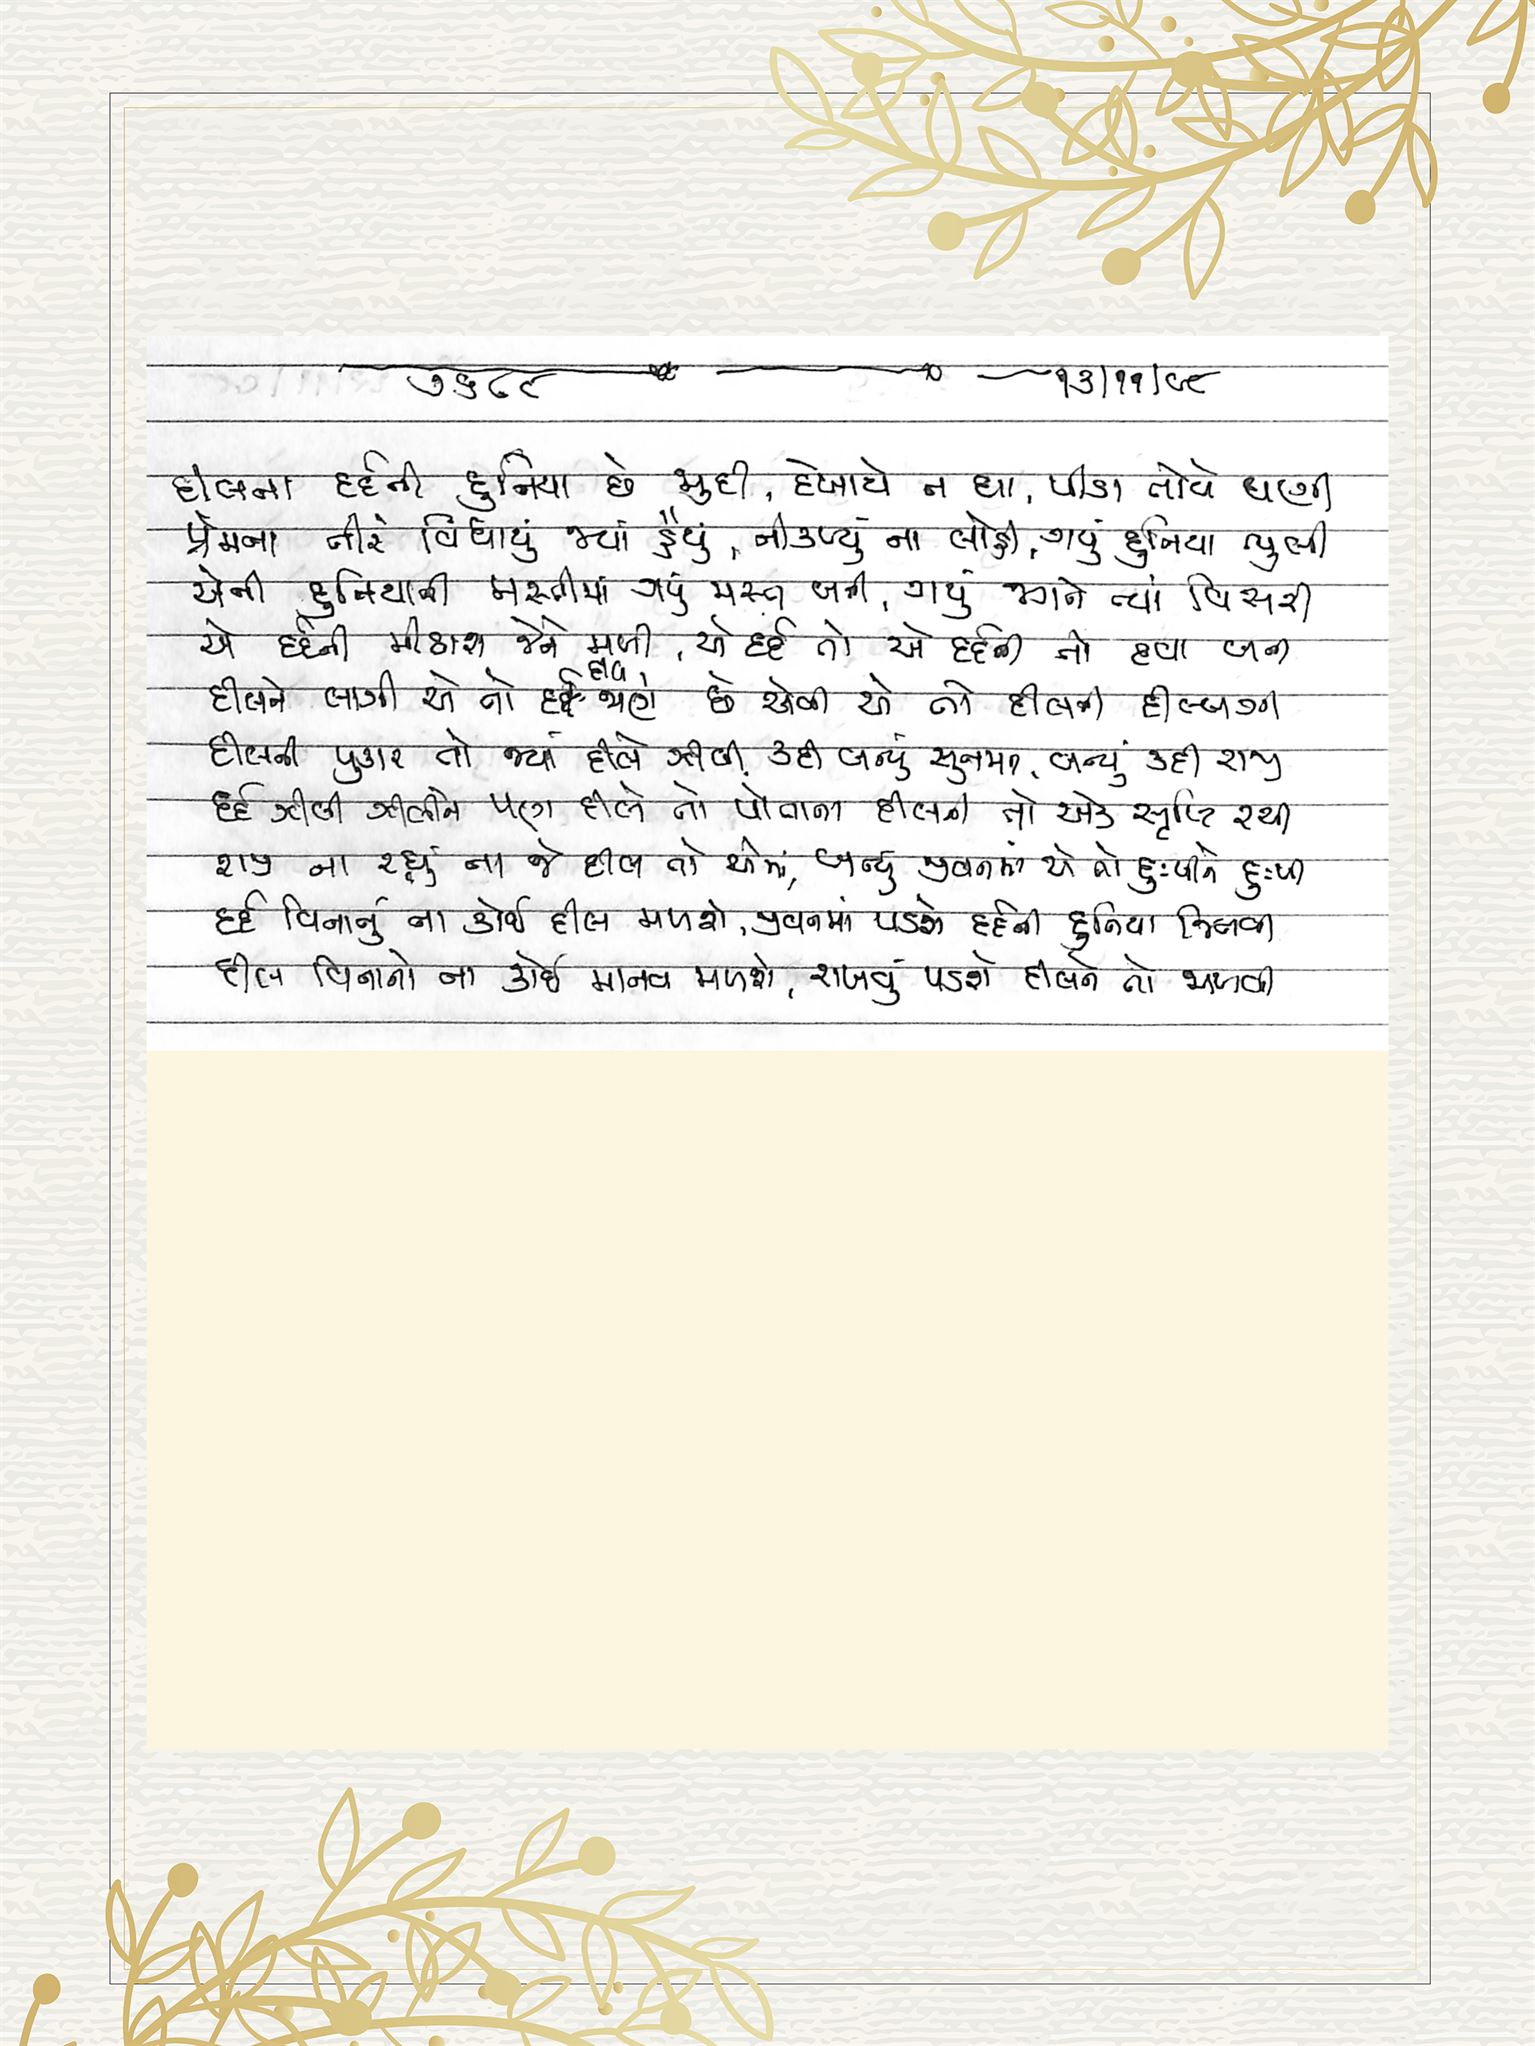 ૭૬૮૯ ૧૩/૧૧/૯૯
દીલના દર્દની દુનિયા છે જુદી, દેખાયે ન ઘા, પીડા તોયે ઘણી
પ્રેમના તીરે વિંધાયું જ્યાં હૈયું, નીકળ્યું ના લોહી, ગયું દુનિયા ભુલી
એની દુનિયાની મસ્તીમાં ગયું મસ્ત બની, ગયું જગને ત્યાં વિસરી
એ દર્દની મીઠાશ જેને મળી, એ દર્દ તો એ દર્દની તો દવા બની
દીલને લાગી એ તો હાય જાણે છે એની એ તો દીલની દીલ્લગી
દીલની પુકાર તો જ્યાં દીલે ઝીલી, કદી બન્યું સુનમુન, બન્યું કદી રાજી
દર્દ ઝીલી ઝીલીને પણ દીલે તો પોતાના દીલની તો એક સૃષ્ટિ રચી
રાજી ના રહ્યું ના જે દીલ તો એમાં, બન્યું જીવનમાં એ તો દુઃખીને દુઃખી
દર્દ વિનાનું ના કોઈ દીલ મળશે, જીવનમાં પડશે દર્દની દુનિયા નિભાવવી
દીલ વિનાનો ના કોઈ માનવ મળશે, રાખવું પડશે દીલને તો જાળવી